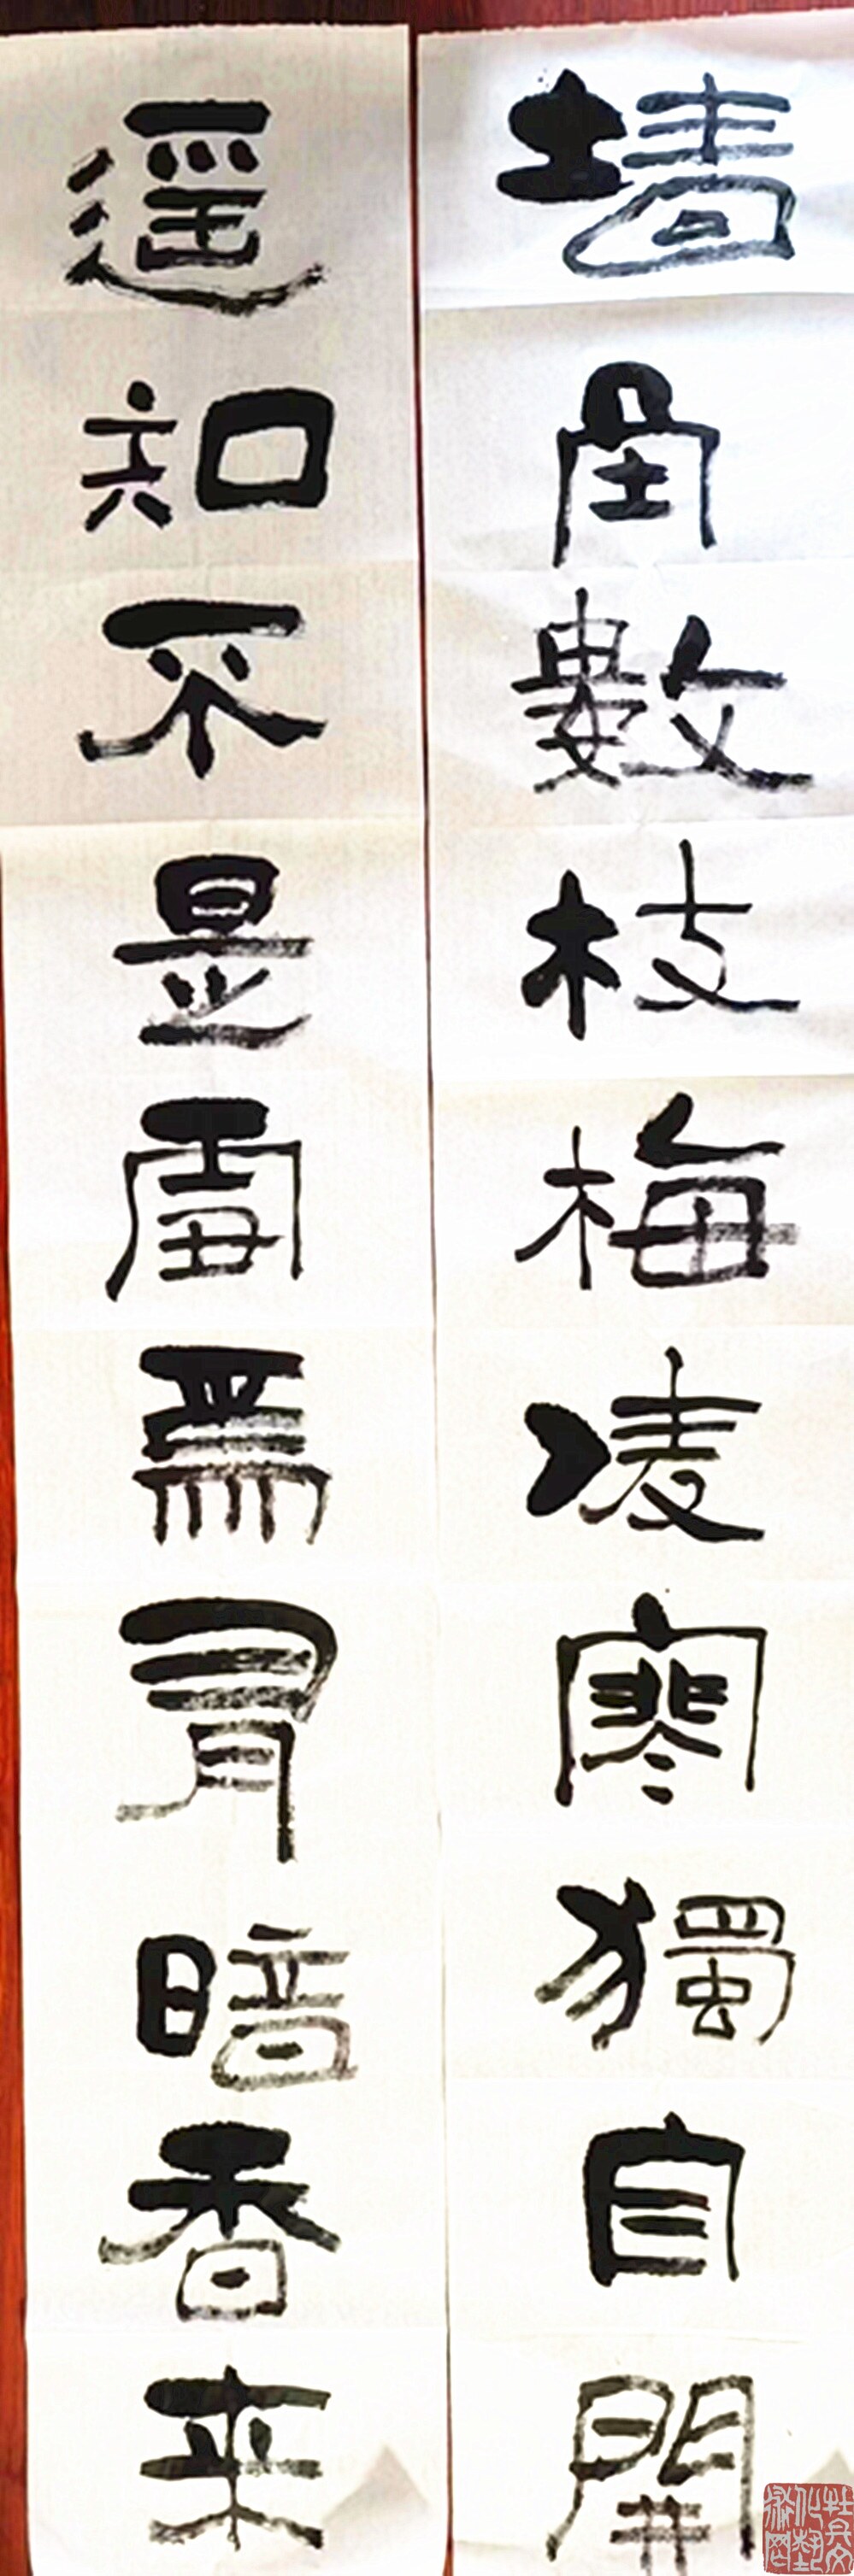 墙角數枝梅凌寒獨自開
遥知不是雪爲有暗香来